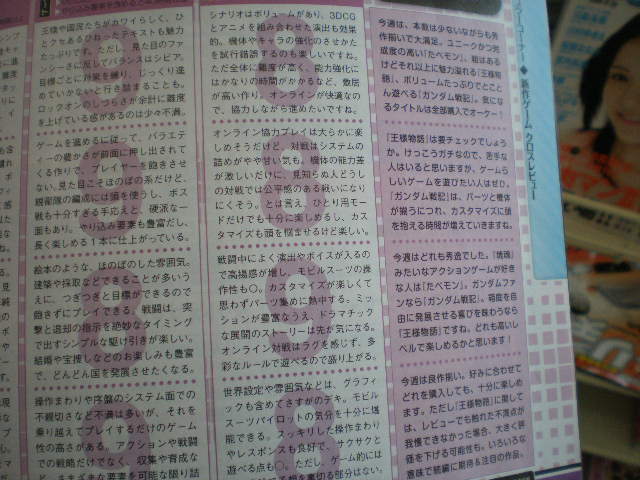 新作ゲーム クロスレビュー
王様や国民たちがカワイらしく、ひ
とクセあるひねったテキストも魅力
たっぷりです。ただし、見た目のファ
ンシーさに反してバランスはシビア。
目標ごとに対策を練り、じっくり進
めていかないと行き詰まることも。
ロックオンのしづらさが余計に難度
を上げている感があるのは少々不満。
ゲームを進めるに従って、バラエティ
ーの豊かさが前面に押し出されてく
る作りで、プレイヤーを飽きさせ
ない。見た目こそほのぼの系だけど、
親衛隊の編成には頭を使うし、ボス
戦も十分すぎる手応えと、硬派な一
面もあり。やり込み要素も豊富だし、
長く楽しめる1本に仕上がっている。
絵本のような、ほのぼのした雰囲気。
建築や採取などできることが多いう
えに、つぎつぎと目標ができるので
飽きずにプレイできる。戦闘は、突
撃と退却の指示を絶妙なタイミング
で出すシンプルな駆け引きが楽しい。
結婚や宝捜しなどのお楽しみも豊富
で、どんどん国を発展させたくなる。
操作まわりや序盤のシステム面での
不親切さなど不満は多いが、それを
乗り越えてプレイするだけのゲーム
性の高さがある。アクションや戦闘
での戦略だけでなく、収集や育成な
シナリオはボリュームがあり、3DCG
とアニメを組み合わせた演出も効果
的。機体やキャラの強化のさせかた
を試行錯誤するのも楽しいですね。
ただ全体に難度が高く、能力強化に
はかなりの時間がかかるなど、敷居
が高い作り。オンラインが快適なの
で、協力しながら進めたいですね。
オンライン協力プレイは大らかに楽
しめそうだけど、対戦はシステムの
詰めがやや甘い気も。機体の能力差
が激しいだけに、見知らぬ人どうし
の対戦では公平感のある戦いになり
にくそう。とは言え、ひとり用モー
ドだけでも十分に楽しめるし、カス
タマイズも頭を悩ませるけど楽しい。
戦闘中によく演出やボイスが入るの
で高揚感が増し、モビルスーツの操
作性も○。カスタマイズが楽しくて
思わずパーツ集めに熱中する。ミッ
ションが豊富なうえ、ドラマチック
な展開のストーリーは先が気になる。
オンライン対戦はラグを感じず、多
彩なルールで遊べるので盛り上がる。
世界設定や雰囲気などは、グラフィ
ックも含めてさすがのデキ。モビル
スーツパイロットの気分を十分に堪
能できる。スッキリした操作まわり
やレスポンスも良好で、サクサクと
遊べる点も○。ただし、ゲーム的には
今週は、本数は少ないながらも秀
作揃いで大満足。ユニークかつ完
成度の高い『たべモン』、粗はある
けどそれ以上に魅力溢れる『王様物
語』、ボリュームたっぷりでとこと
ん遊べる『ガンダム戦記』。気にな
るタイトルは全部購入でオーケー！
『王様物語』は要チェックでしょう
か。けっこうガチなので、苦手な
人はいると思いますが、ゲームら
しいゲームを遊びたい人はぜひ。
『ガンダム戦記』は、パーツと機体
が揃うにつれ、カスタマイズに頭
を抱える時間が増えていきますね。
今週はどれも秀逸でした。『塊魂』
みたいなアクションゲームが好き
な人は『たべモン』。ガンダムファ
ンなら『ガンダム戦記』。箱庭を自
由に発展させる喜びを味わうなら
『王様物語』ですね。どれも高いレ
ベルで楽しめるかと思います！
今週は良作揃い。好みに合わせて
どれを購入しても、十分に楽しめ
ます。ただし『王様物語』に関して
は、レビューでも触れた不満点が
我慢できなかった場合、大きく評
価を下げる可能性も。いろいろな
意味で続編に期待＆注目の作品。